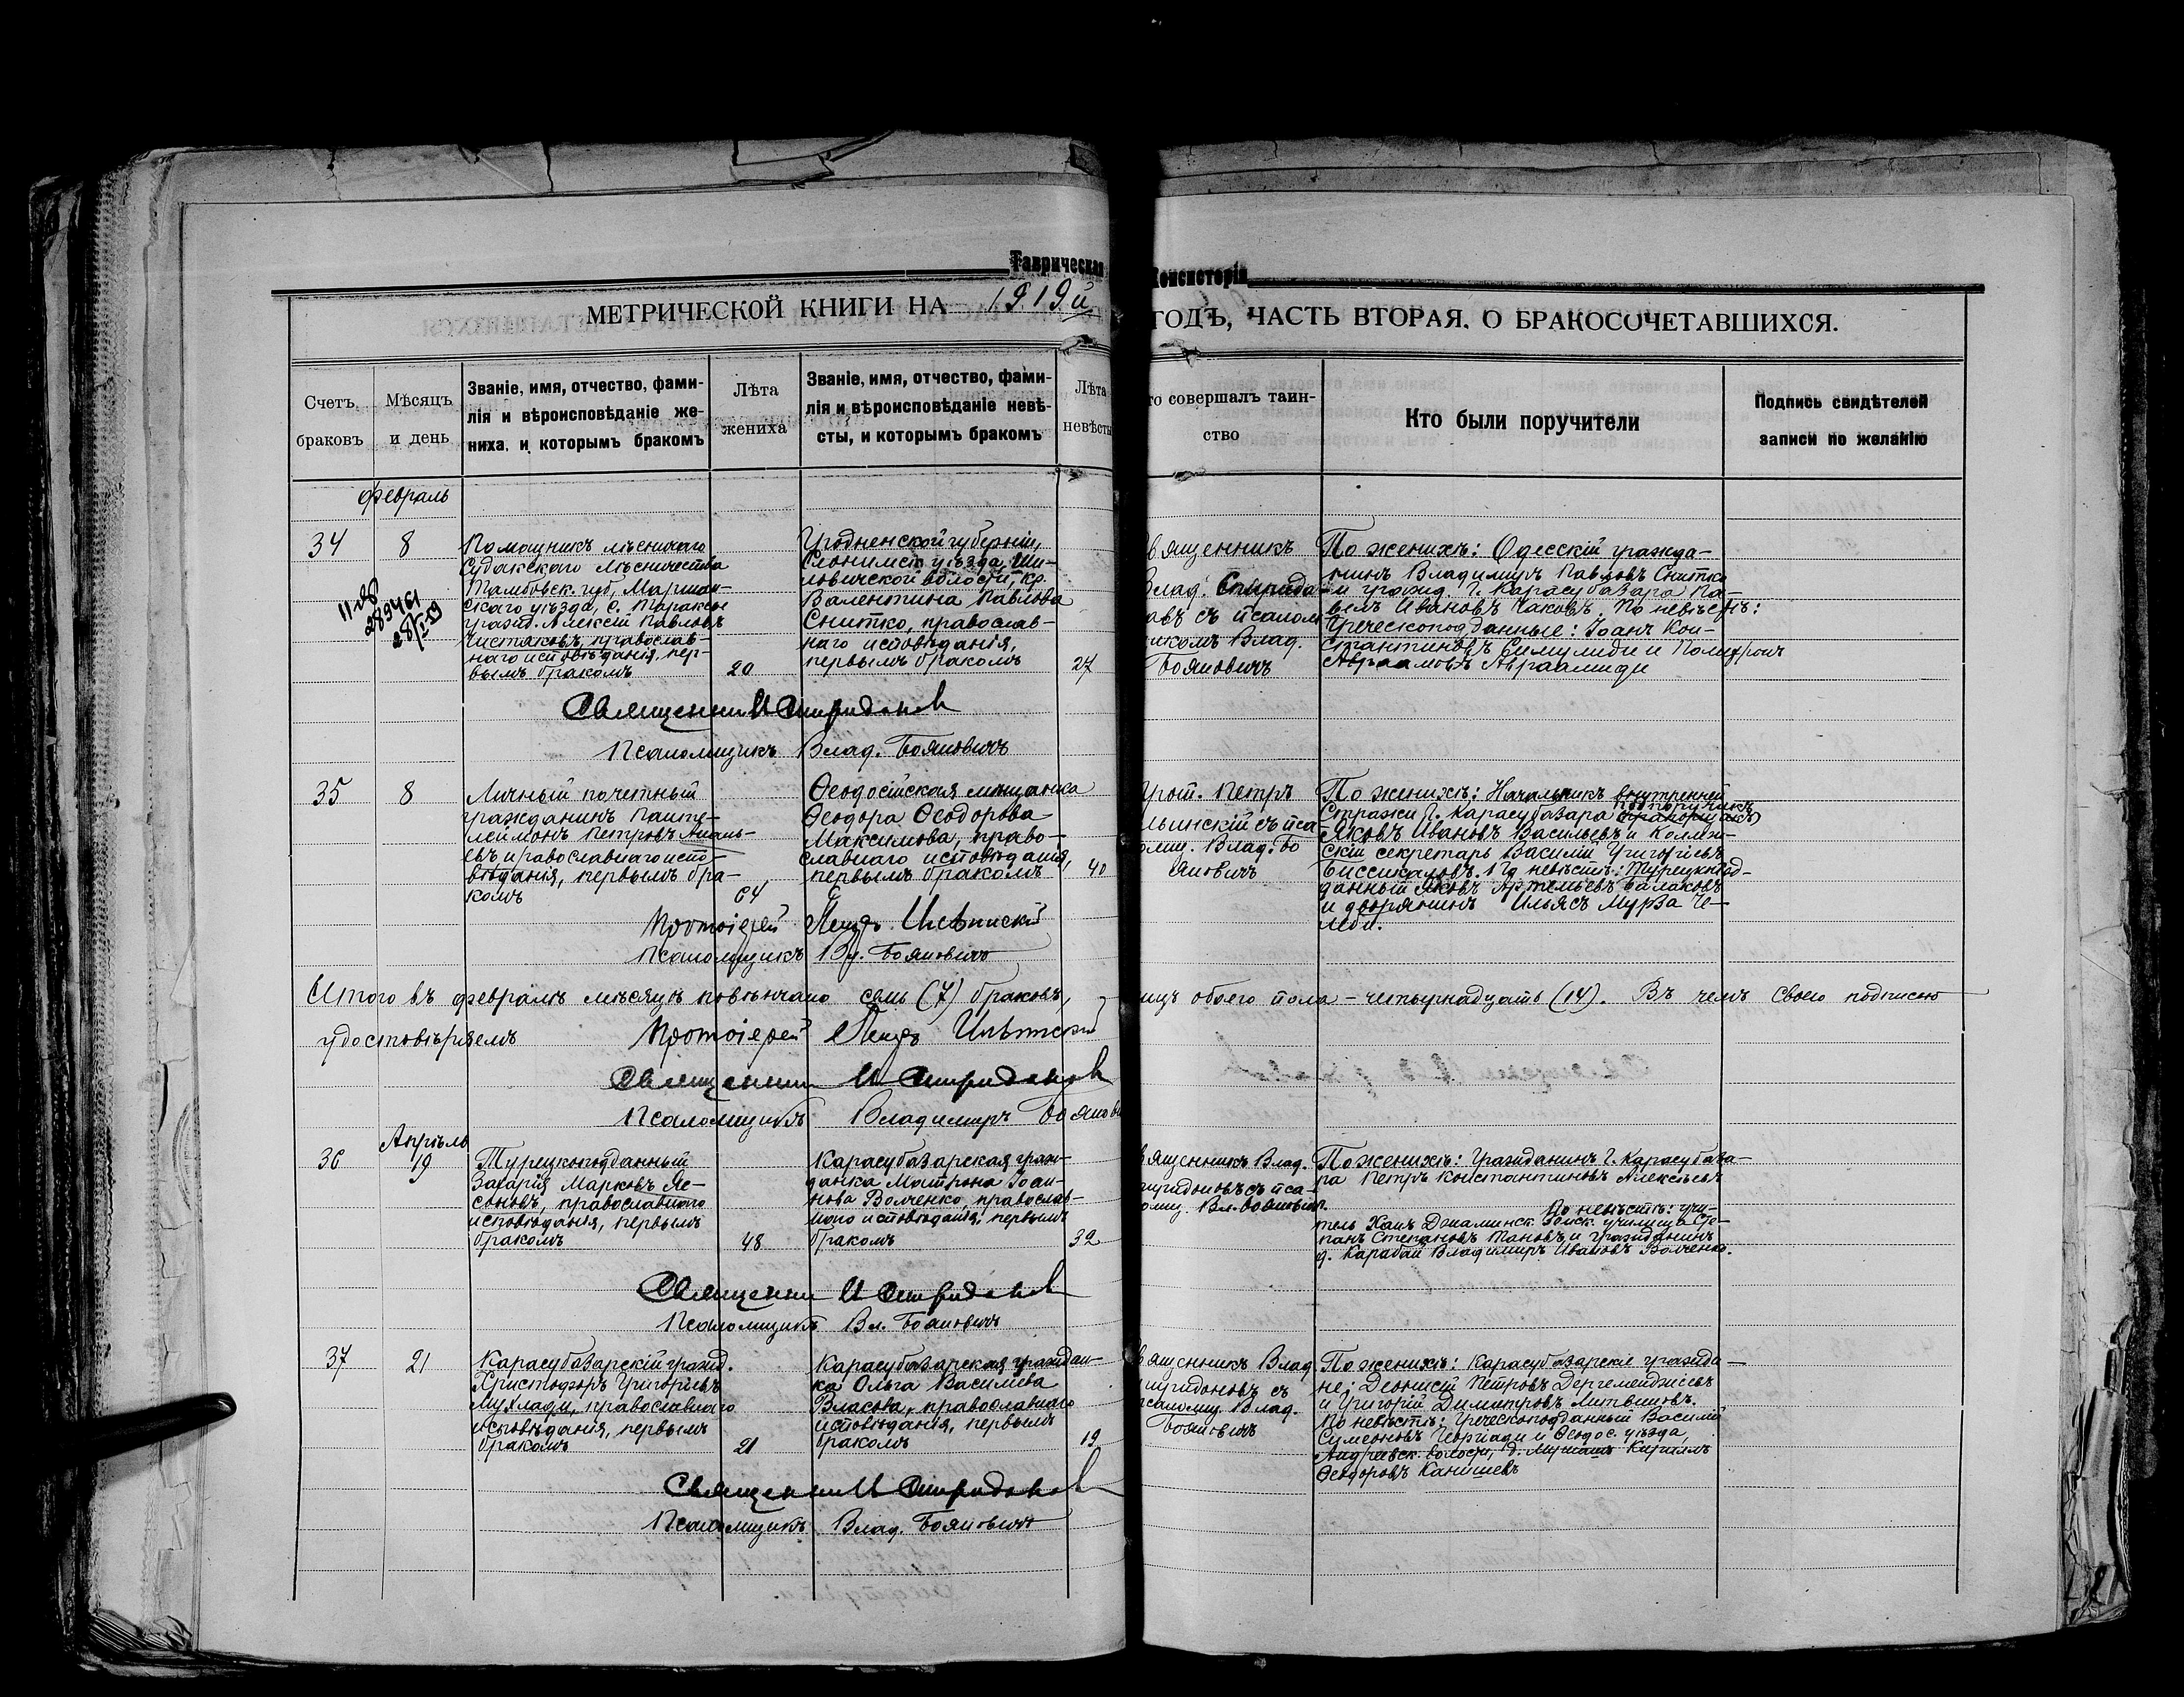 Таврическая
Консисторія
МЕТРИЧЕСКОЙ КНИГИ НА 1919й
ГОДЪ, ЧАСТЬ ВТОРАЯ, О БРАКОСОЧЕТАВШИХСЯ.
Счетъ браковъ
Мѣсяцъ и день
Званіе, имя, отчество, фами-
лія и вѣроисповѣданіе же-
ниха, и которымъ бракомъ
Лѣта
жениха
Званіе, имя, отчество, фами-
лія и вѣроисповѣданіе невѣ-
сты, и которымъ бракомъ
Лѣта
невѣсты
то совершалъ таин-
ство
Кто были поручители
Подпись свидѣтелей
записи по желанію
Февраль
34
8
Помощникъ лѣсничаго
Судакскаго лѣсничества
Тамбовск. губ,
скаго уѣзда, с.
гражд. Алексѣй Павловъ
Чистяковъ, православ-
наго исповѣданія, пер-
вымъ бракомъ
20
Гродненской губерніи,
Слонимск уѣзда, Ши-
ловичской волости, кр.
Валентина Павлова
Снитко, православ-
наго исповѣданія,
первымъ бракомъ
27
вященникъ
Влад. Спиридо-
овъ съ псалом
икомъ Влад.
Бояновичъ
По женихѣ: Одесскій гражда-
нинъ Владимиръ Павловъ Снитко
и гражд. г. Карасубазара Па-
велъ Ивановъ Чаковъ. По невѣстѣ:
Греческоподданные: Іоанъ Кон-
стантиновъ и Полихронъ
Авраамовъ Авраамиди
Священникъ Спиридоновъ
Псаломщикъ Влад. Бояновичъ
35
8
Личный почетный
гражданинъ Панте-
леймонъ Петровъ
евъ православнаго испо-
вѣданія, первымъ бра-
комъ
64
Ѳеодосійская мѣщанка
Ѳеодора Ѳеодорова
Максимова, право-
славнаго исповѣданія,
первымъ бракомъ
40
Прот. Петръ
льинскій съ пса-
омщ. Влад. Бо
яновичъ
По женихѣ: Начальникъ внутренней
Стражи г. Карасубазара подпоручикъ
Яковъ Ивановъ Васильевъ и Коллеж-
скій секретарь Василій Григорьевъ
По невѣстѣ: Турецкопод-
данный Яковъ Артемьевъ Балаковъ
и дворянинъ Ильясъ Мурза Че-
леби.
Протоіерей Петръ Ильинскій
Псаломщикъ Вл. Бояновичъ
Итого въ февралѣ мѣсяцѣ повѣнчано семь (7) браковъ,
ицъ обоего пола - четырнадцать (14). Въ чемъ своею подписью
удостовѣряемъ Протоіерей Петръ Ильинскій
Священникъ Спиридоновъ
Псаломщикъ Владимиръ Боянови
Апрѣль
36
19
Турецкоподданный
Захарія Марковъ Яс-
соновъ, православнаго
исповѣданія, первымъ
бракомъ
48
Карасубазарская граж-
данка Матрона Іоан-
нова Волченко, православ-
наго исповѣданія, первымъ
бракомъ
32
вященникъ Влад.
пиридоновъ съ пса-
омщ. Вл. Бояновичъ.
По женихѣ: Гражданинъ г. Карасубаза-
ра Петръ Константиновъ Алексѣевъ
По невѣстѣ: учи-
тель Ханъ училища Сте-
панъ Степановъ Пановъ и гражданинъ
д. Карабай Владимиръ Ивановъ Волченко.
Священникъ Спиридоновъ
Псаломщикъ Вл. Бояновичъ
37
21
Карасубазарскій гражд.
Христофоръ Григорьевъ
православнаго
исповѣданія, первымъ
бракомъ
21
Карасубазарская граждан-
ка Ольга Васильева
Власова, православнаго
исповѣданія, первымъ
бракомъ
19
вященникъ Влад
пиридоновъ съ
псаломщ. Влад.
Бояновичъ
По женихѣ: Карасубазарскіе гражда-
не: Деонисій Петровъ Дергеменджіевъ
и Григорій Димитровъ Литвиновъ.
По невѣстѣ: Греческоподданный Василій
Сумеоновъ Георгіади и Ѳеодос. уѣзда,
волости, д. Кириллъ
Ѳеодоровъ Канишевъ
Священникъ Спиридоновъ
Псаломщикъ Влад. Бояновичъ